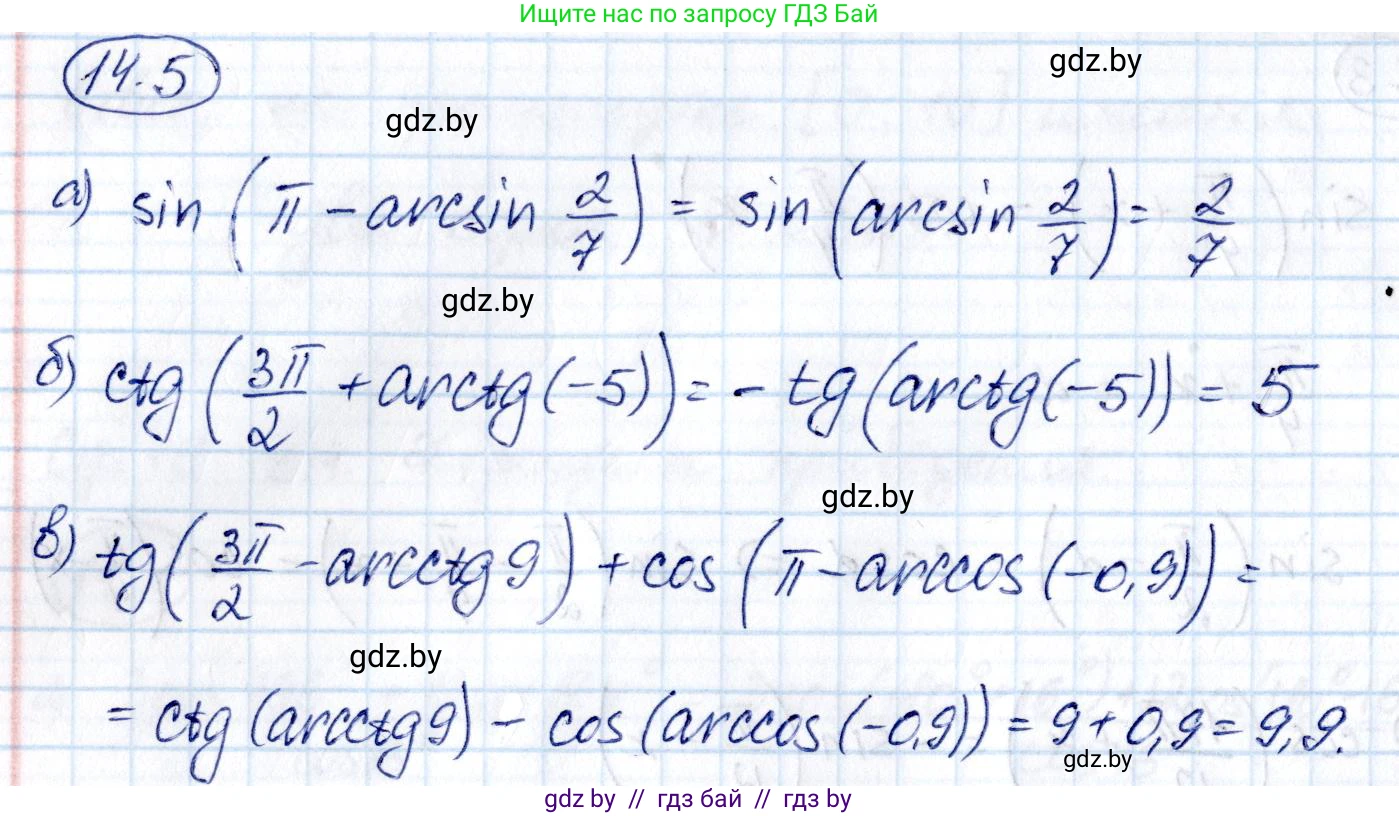 Ищите нас по запросу ГДЗ Бай
14.5
gdz.by
gdz.by
а) sin (π - arcsin 2/7) = sin (arcsin 2/7) = 2/7
gdz.by
б) ctg (3π/2 + arctg(-5)) = - tg(arctg(-5)) = 5
gdz.by
в) tg(3π/2 - arcctg 9) + cos (π - arccos (-0,9)) =
gdz.by
= ctg (arcctg 9) - cos (arccos (-0,9)) = 9 + 0,9 = 9,9.
gdz.by
gdz by // гдз бай // гдз by